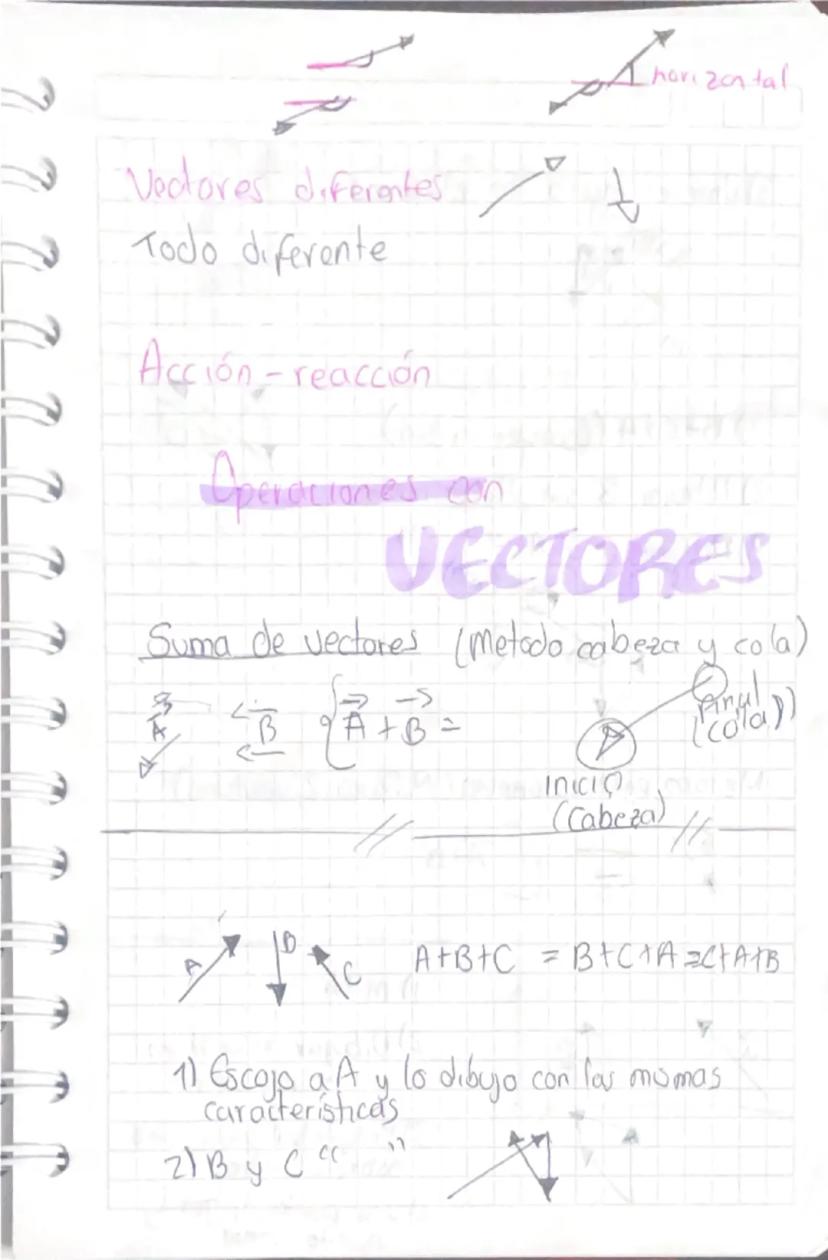 horizontal
Vectores diferentes
Todo diferente
Acción - reacción
Operaciones con
VECTORES
Suma de vectores (Metodo cabeza y cola)
A B { A + B =
Final
(cola)
Inicio
(Cabeza)
A B C A+B+C = B+C+A = C+A+B
1) Escojo a A y lo dibujo con las mismas
características
2) B y C " "